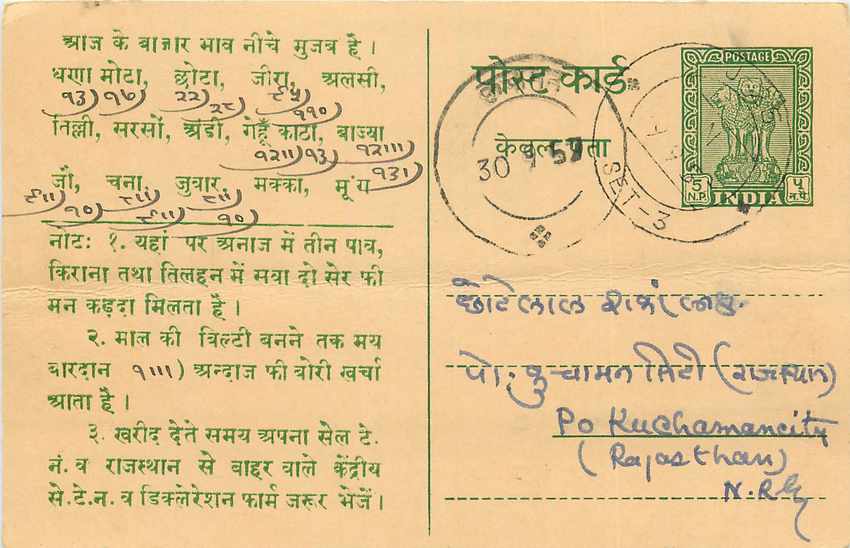 आज के बाजार भाव नीचे मुजब है।
धणा मोटा, छोटा, जीरा, अलसी,
१३) १७) २२) २८) ११०)
तिल्ली, सरसों, अंडी, गेहूँ काठा, बाज्या
१२॥) १३) १२।॥) १३१)
जौ, चना, जुवार, मक्का, मूंग
१०) १०)
नोटः १. यहां पर अनाज में तीन पाव,
किराना तथा तिलहन में सवा दो सेर फी
मन कड़दा मिलता है।
२. माल की बिल्टी बनने तक मय
बारदान १॥।) अन्दाज फी बोरी खर्चा
आता है।
३. खरीद देते समय अपना सेल टे.
नं. व राजस्थान से बाहर वाले केंद्रीय
से.टे.न. व डिक्लेरेशन फार्म जरूर भेजें।
पोस्ट कार्ड
केवल पता
POSTAGE
5 N.P.
INDIA
५ न.पै.
30
SET-3
छोटेलाल
पो. कुचामन सिटी (राजस्थान)
Po Kuchamancity
(Rajasthan)
N.Rly